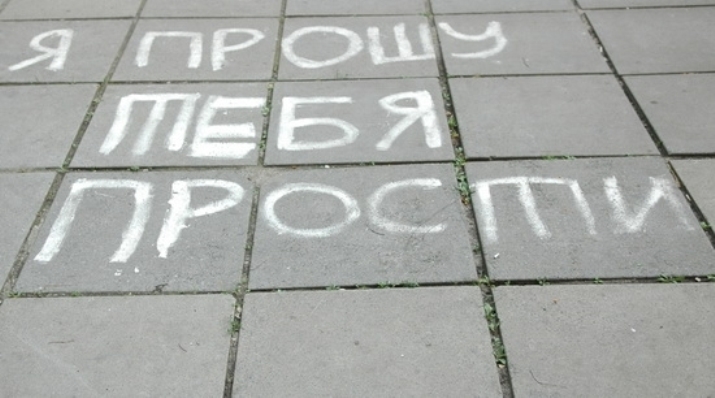 Я ПРОШУ
ТЕБЯ
ПРОСТИ